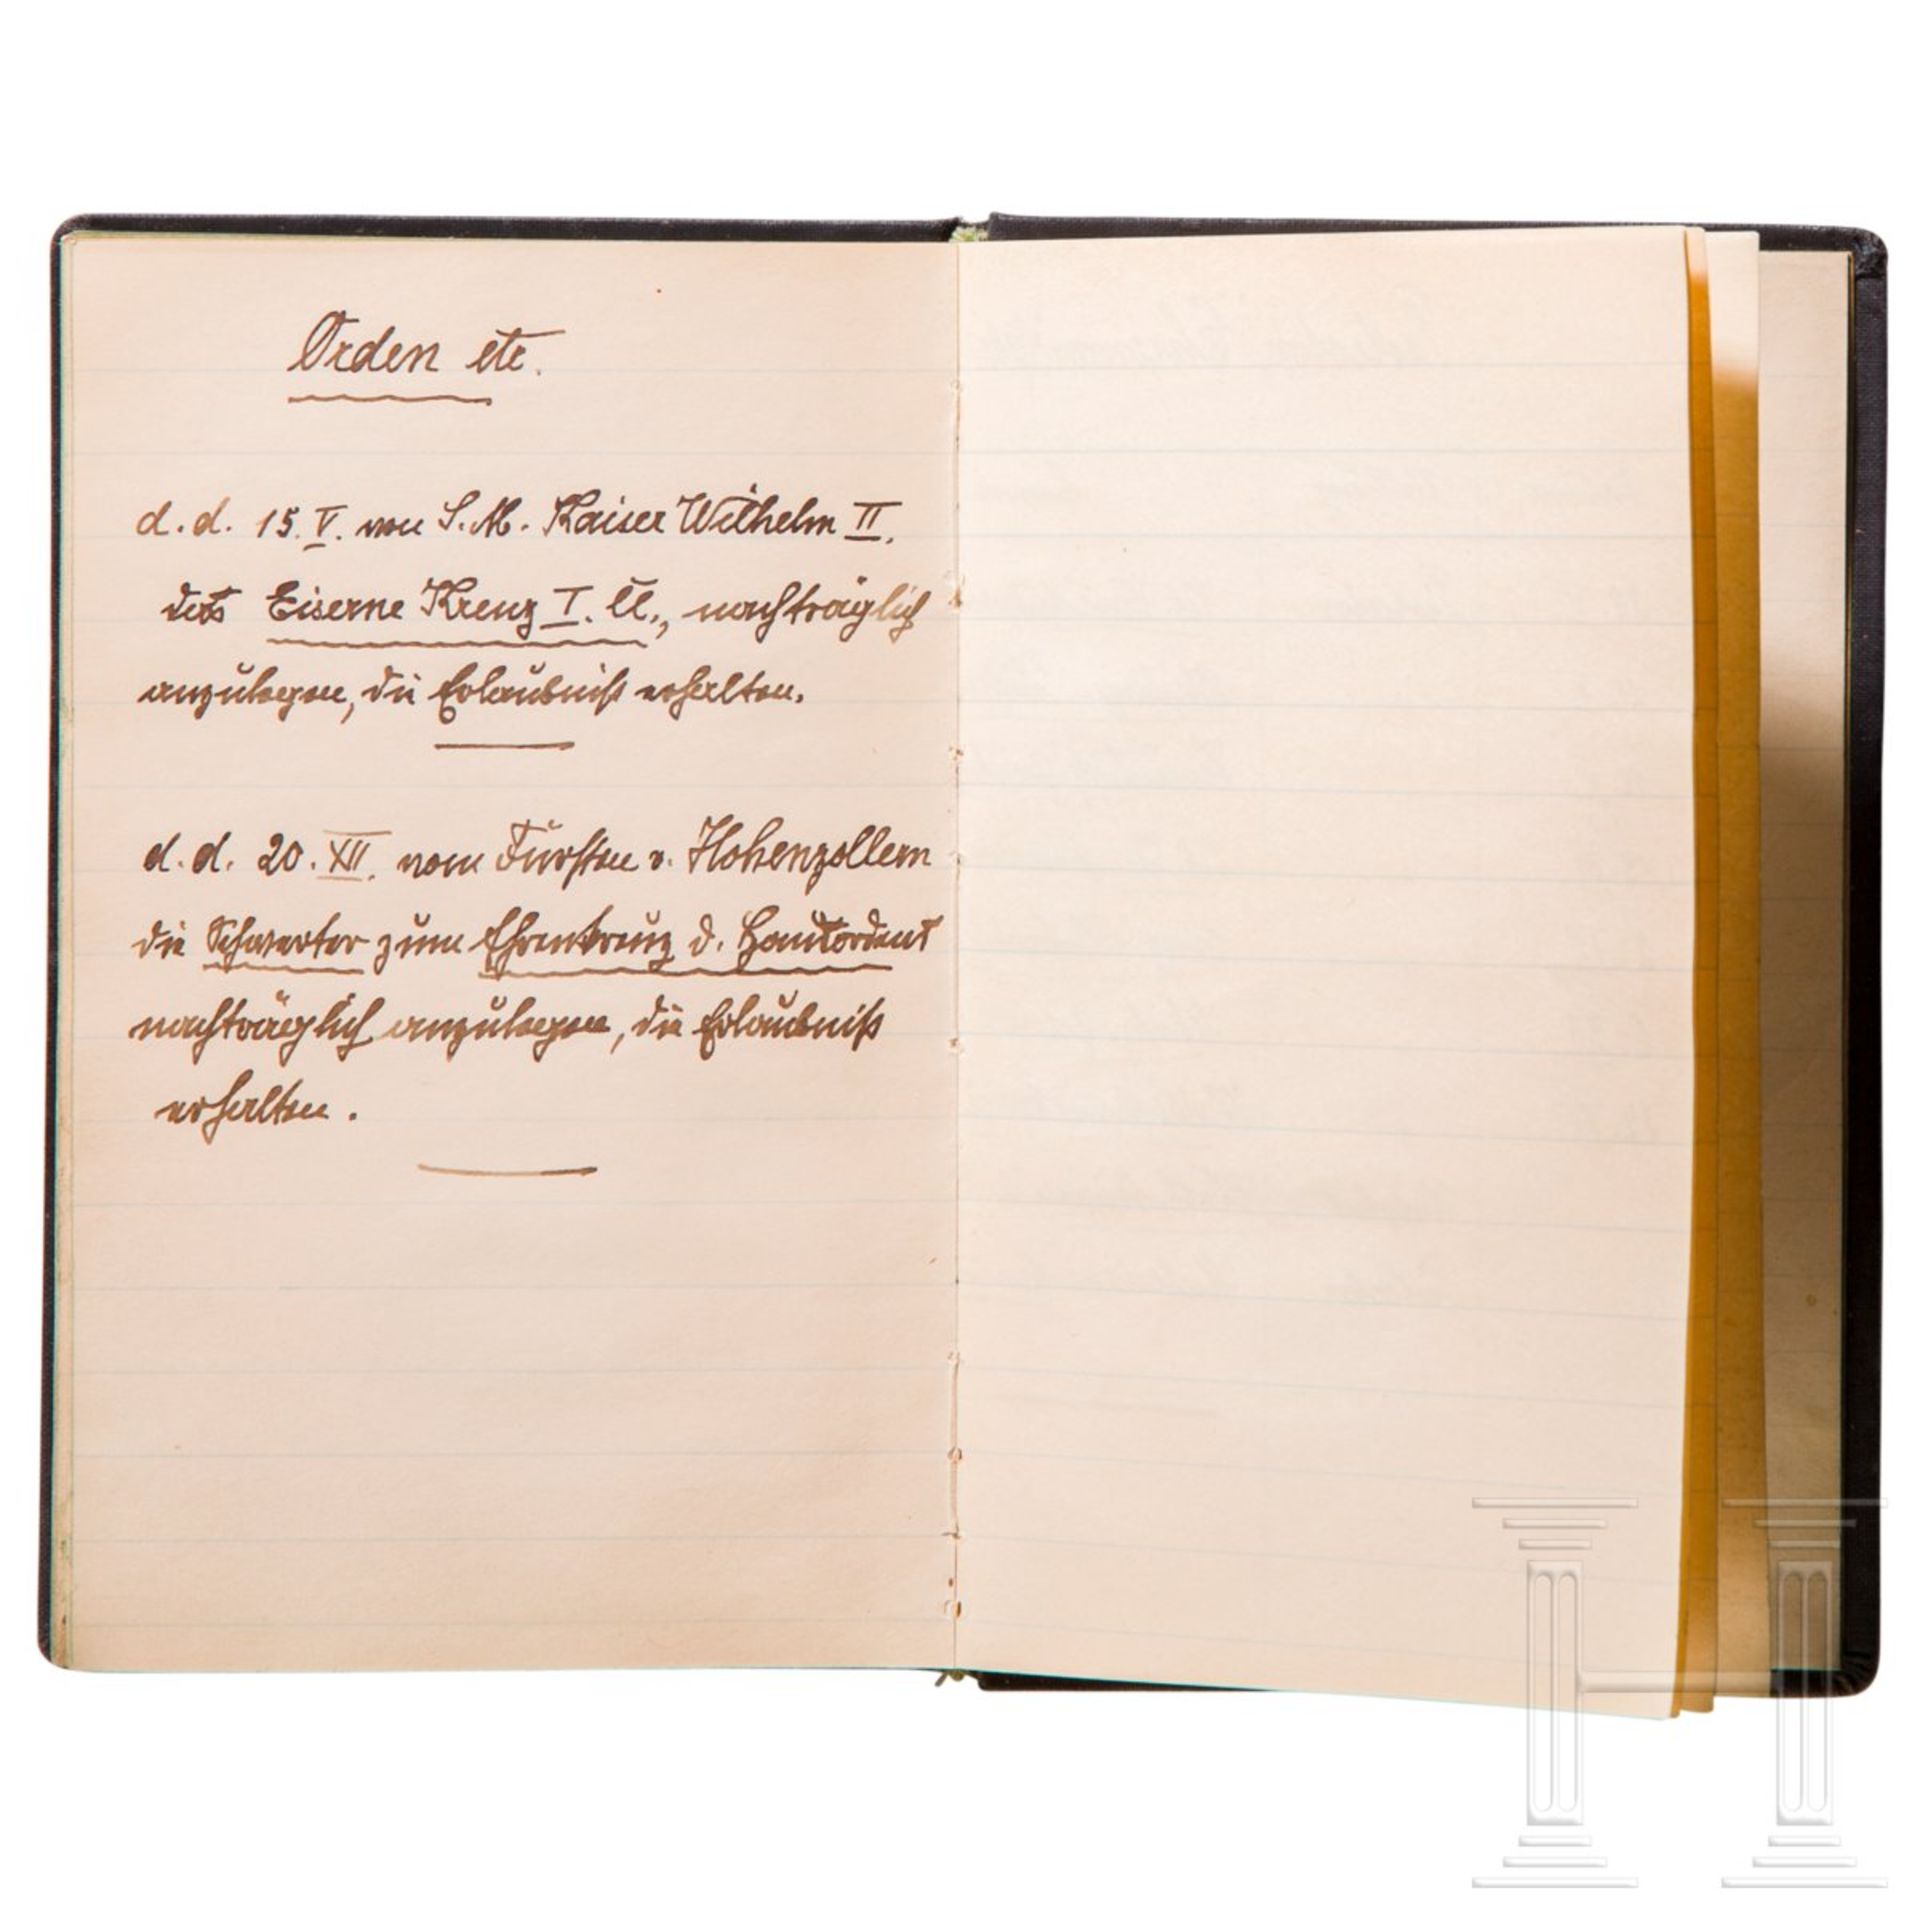 Orden etc.
d. d. 15. V. von S. M. Kaiser Wilhelm II.
das Eiserne Kreuz I. Cl., nachträglich
anzulegen, die Erlaubniß erhalten.
d. d. 20. XII. vom Fürsten v. Hohenzollern
die Schwerter zum Ehrenkreuz d. Hausordens
nachträglich anzulegen, die Erlaubniß
erhalten.